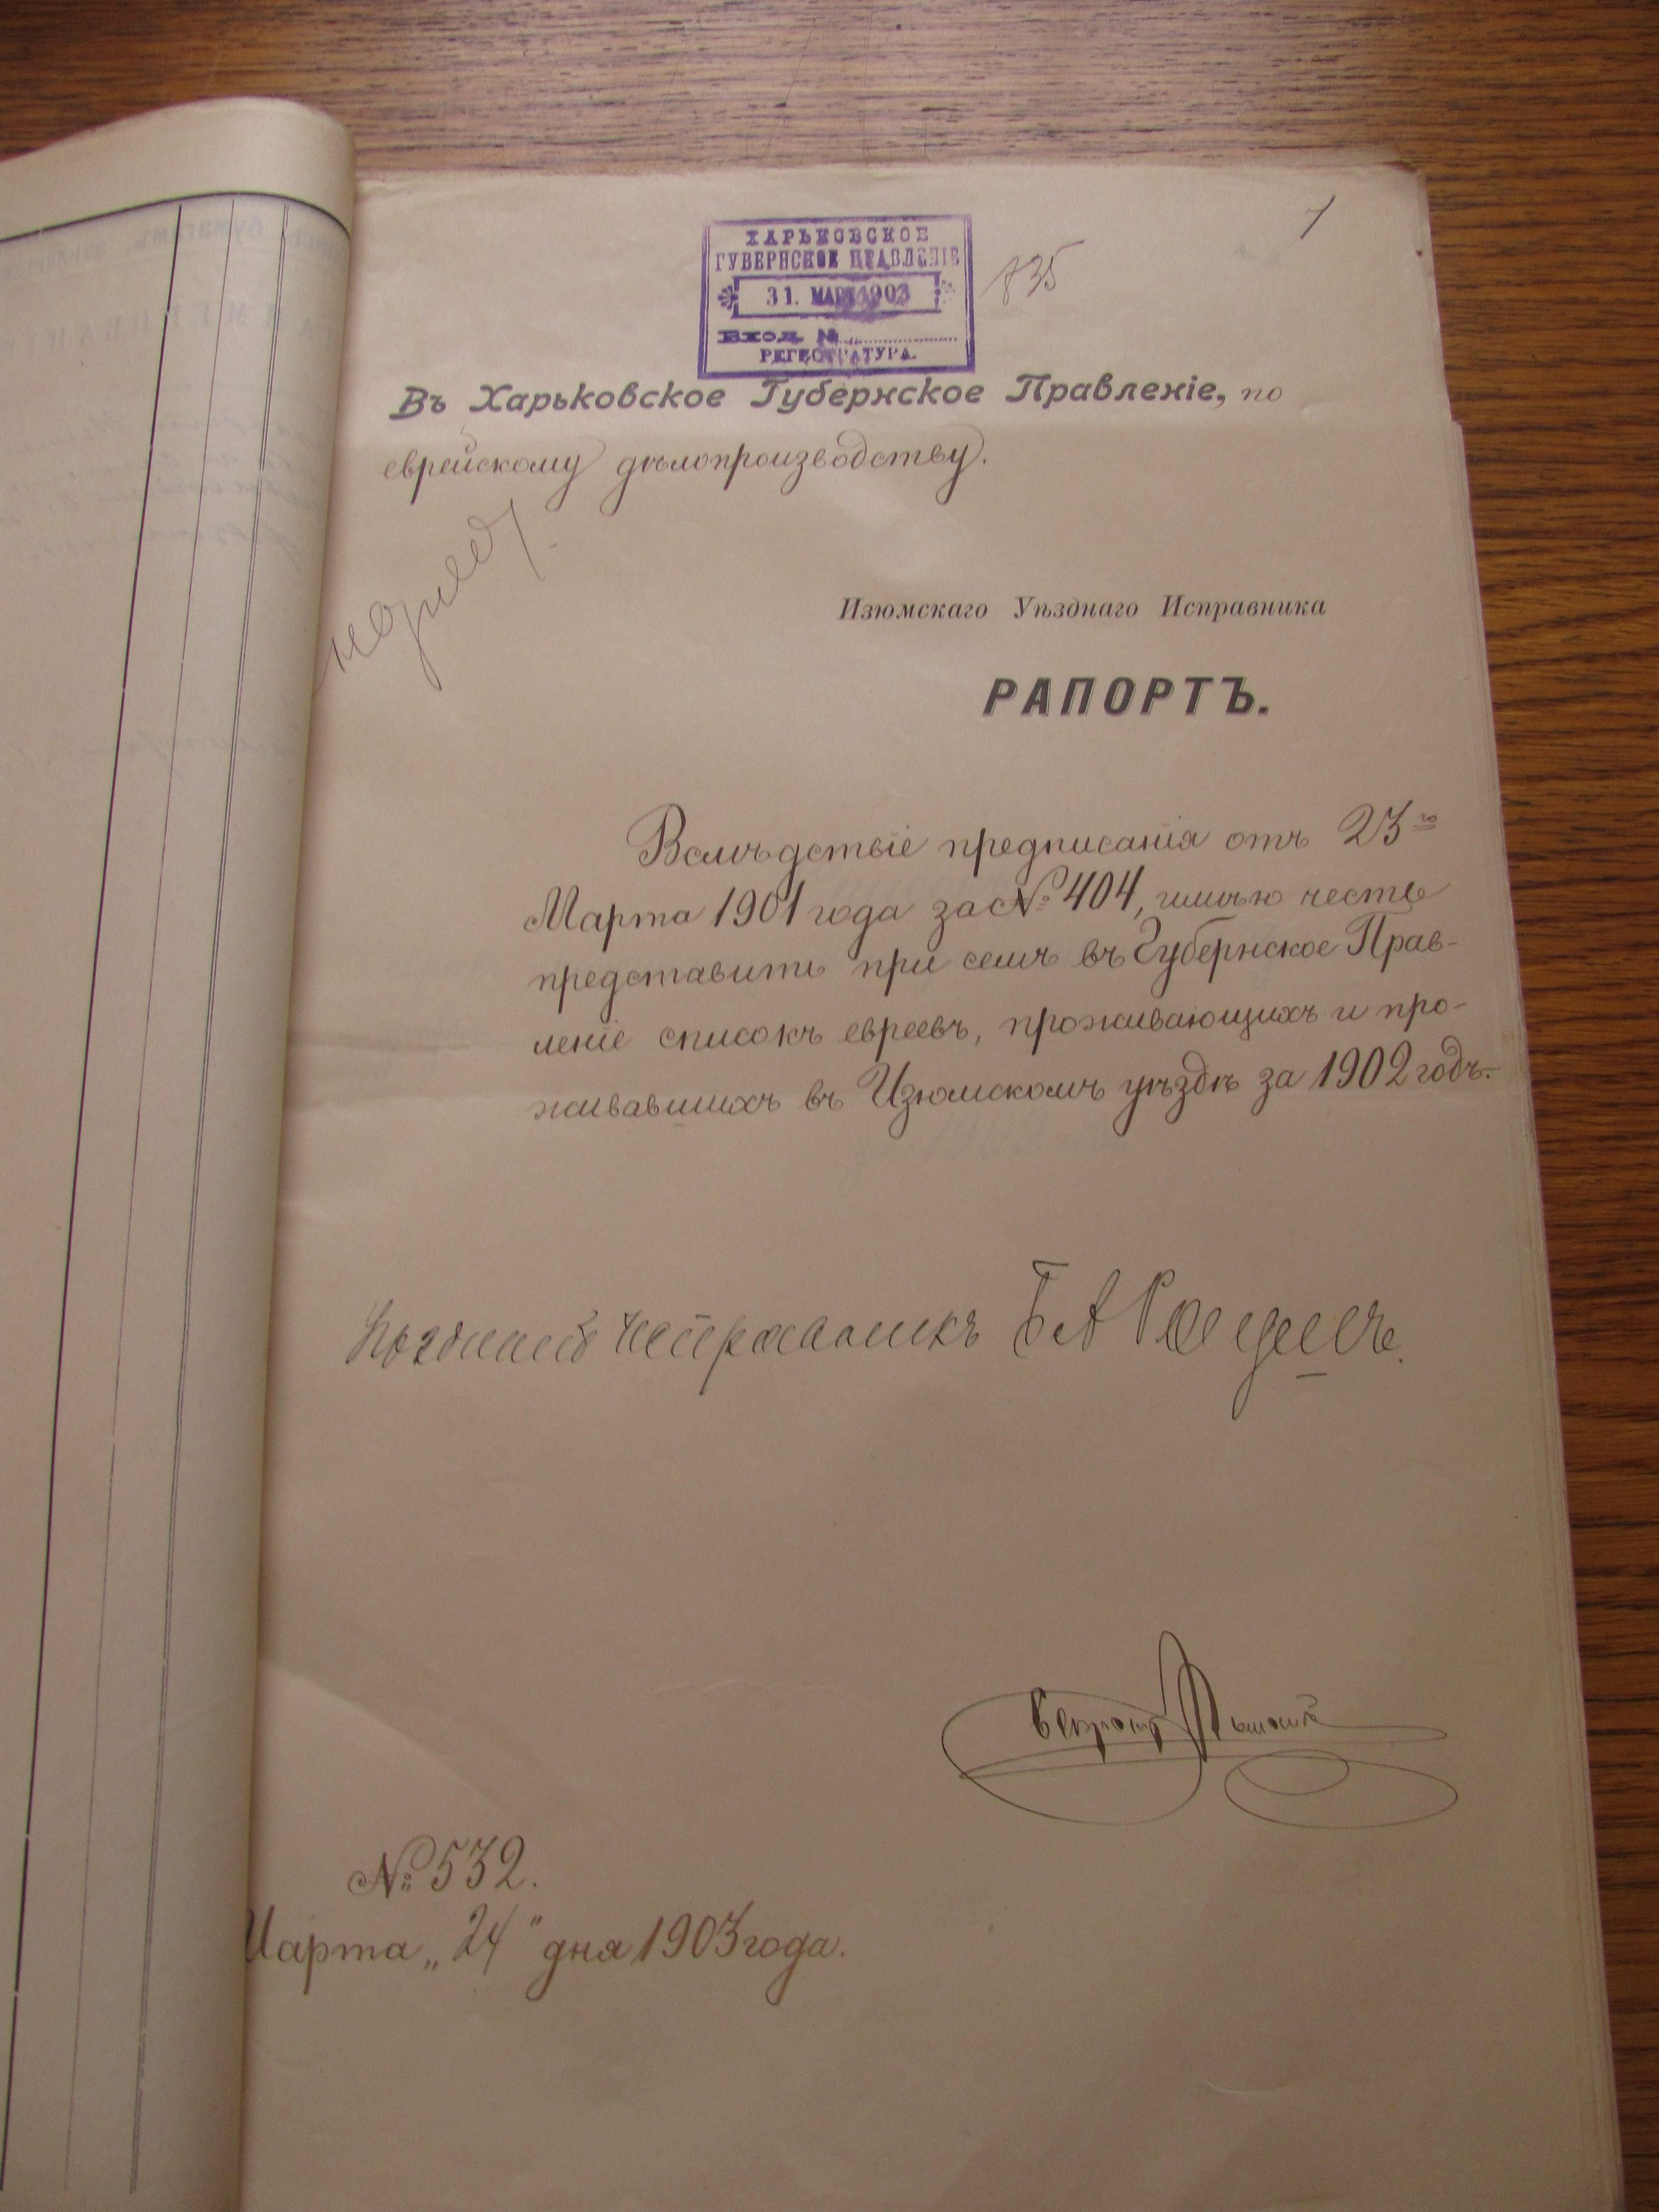 1
ХАРЬКОВСКОЕ
ГУБЕРНСКОЕ ПРАВЛЕНІЕ
31. МАР. 1903
Вход. №
РЕГИСТРАТУРА.
835
Въ Харьковское Губернское Правленіе, по
еврейскому дѣлопроизводству.
Изюмскаго Уѣзднаго Исправника
РАПОРТЪ.
Вслѣдствіе предписанія отъ 23го
Марта 1901 года за № 404, имѣю честь
представить при семъ въ Губернское Прав-
леніе списокъ евреевъ, проживающихъ и про-
живавшихъ въ Изюмскомъ уѣздѣ за 1902 годъ.
Уѣздный Исправникъ
Секретарь
№ 532.
Марта „24" дня 1903 года.